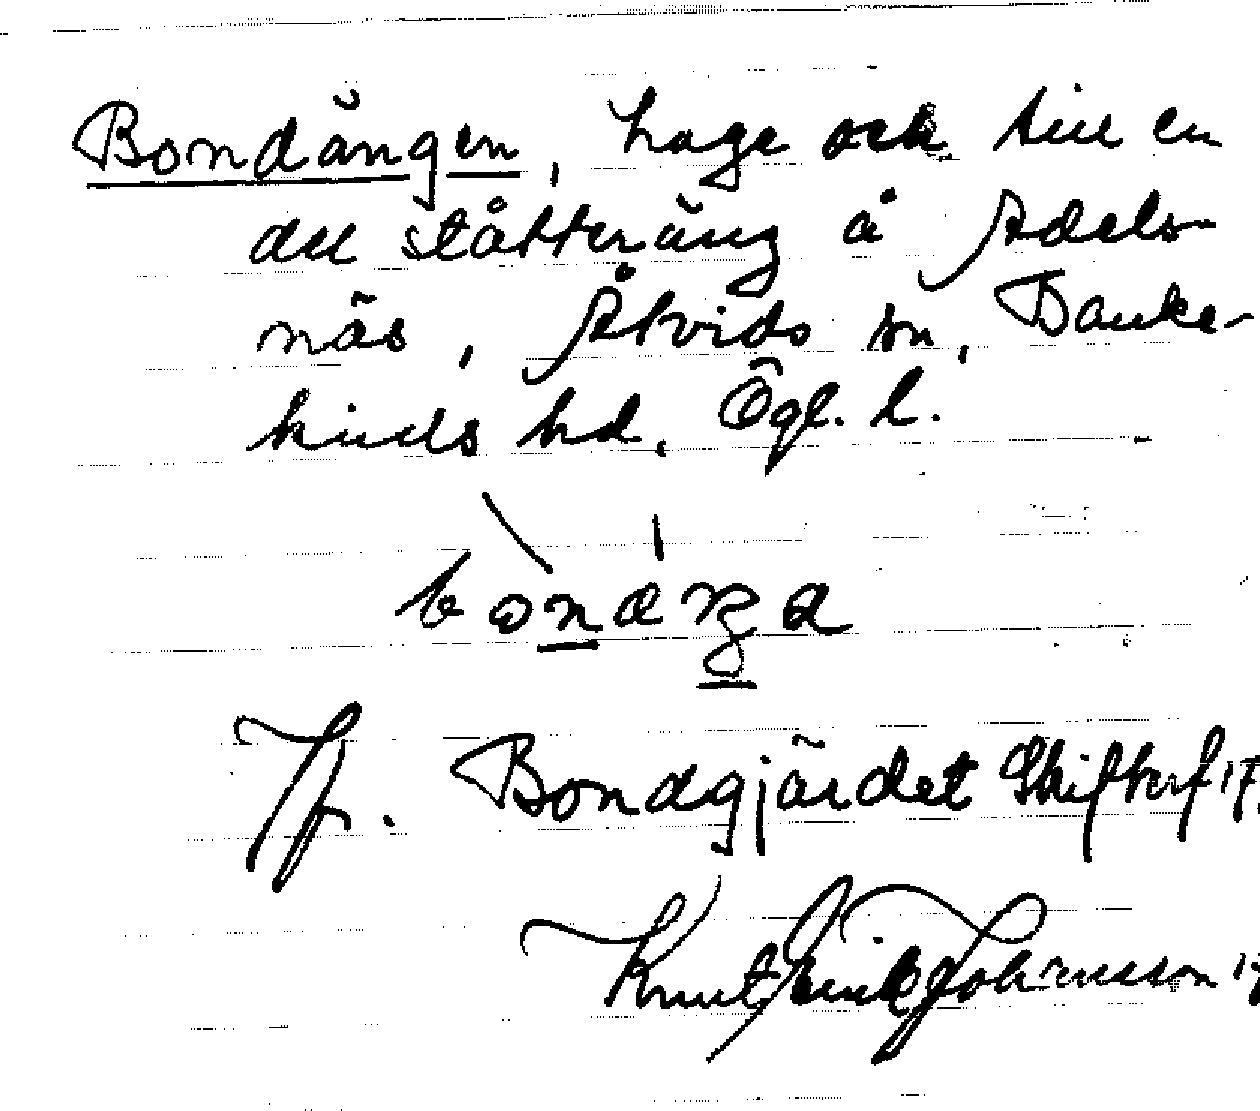 Bondängen, hage och till en
del slåtteräng å Adels-
näs, Åtvids sn, Banke-
kinds hd. Ögl. l.
Jf. Bondgjärdet Skifterf 17
Knut Erik Johansson 17